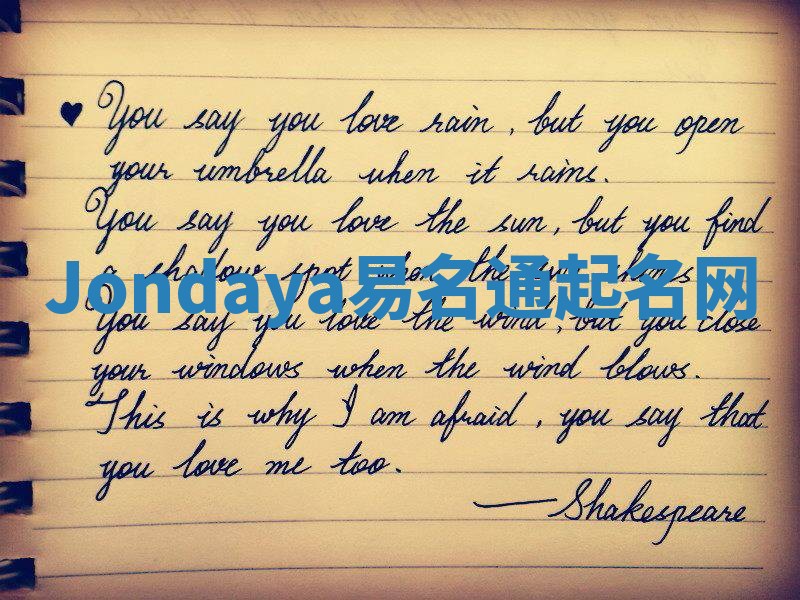 You say you love rain, but you open
your umbrella when it rains.
You say you love the sun, but you find
a shadow spot when the sun shines
Jondaya易名通起名网
You say you love the wind, but you close
your windows when the wind blows.
This is why I am afraid, you say that
you love me too.
—Shakespeare